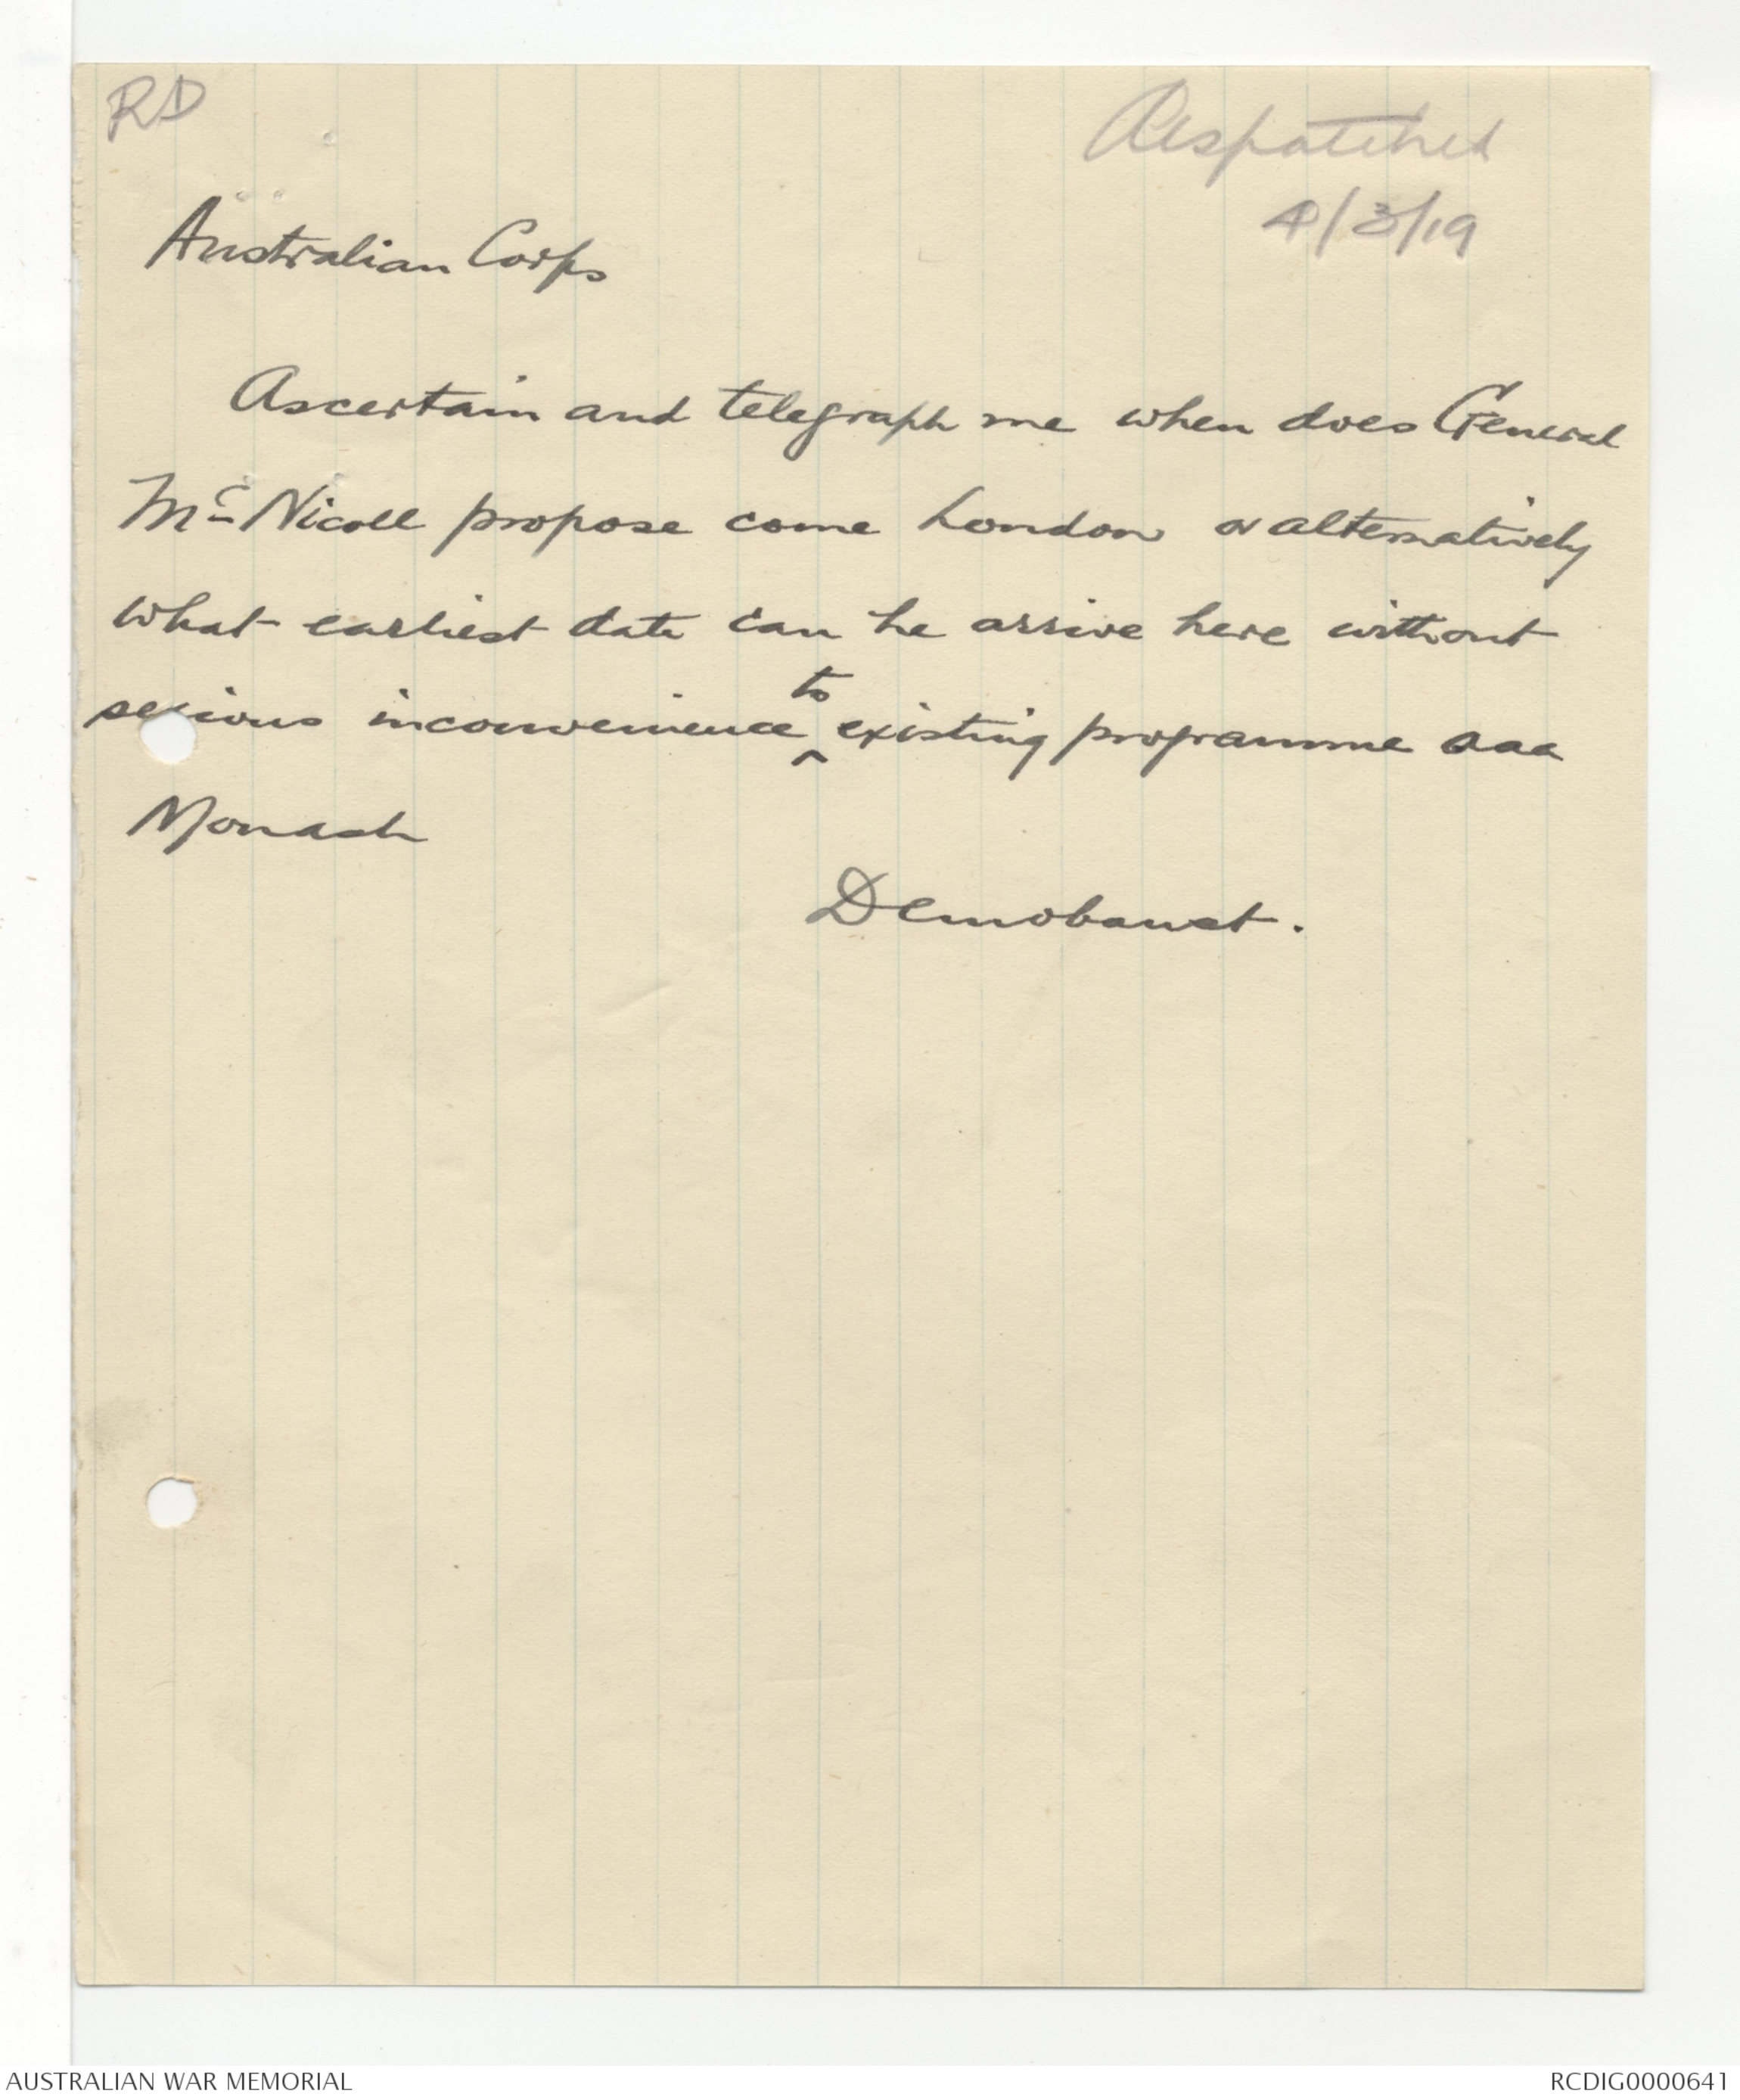 RD
Despatched
4/3/19
Australian Corps
Ascertain and telegraph me when does General
McNicoll propose come London or alternatively
what earliest date can he arrive here without
serious inconvenience to existing programme aaa
Monash
Demobaust.
AUSTRALIAN WAR MEMORIAL
RCDIG0000641